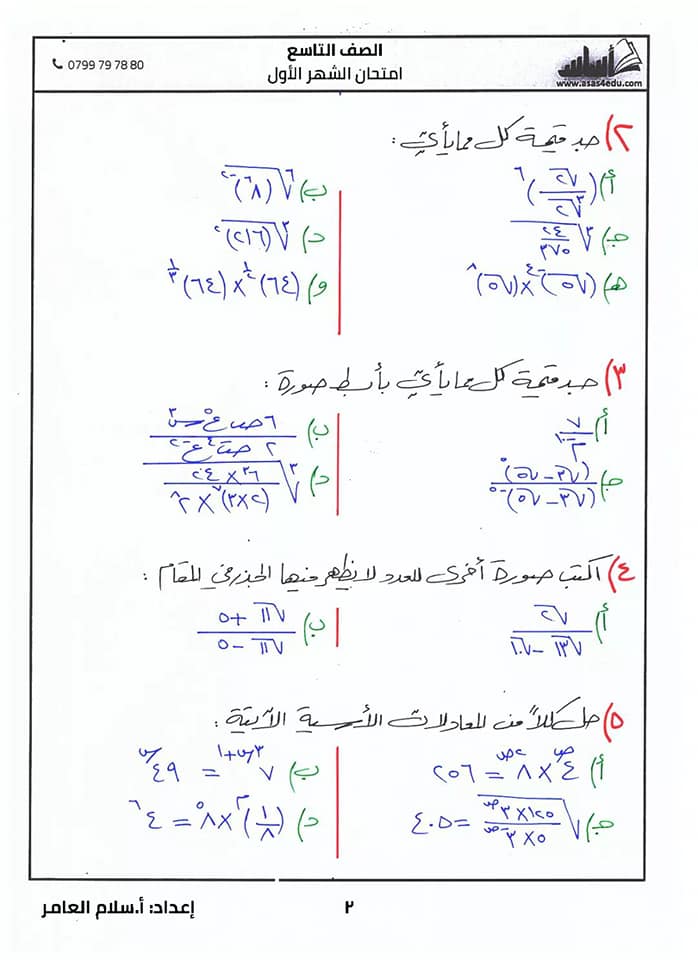 الصف التاسع
امتحان الشهر الأول
0799 79 78 80
www.asas4edu.com
٢) جد قيمة كل مما يأتي :
أ) (√٢ / ∛٢)^٦
ب) ⁶√(٨٦)^-٢
ج) ∛(٢٤ / ٣٧٥)
د) ∛(٢١٦)^٢
هـ) (√٥)^-٤ × (√٥)^٨
و) (٦٤)^١/٢ × (٦٤)^١/٣
٣) جد قيمة كل مما يأتي بأبسط صورة :
أ)
ب)
ج) (√٣ - √٥)^٥ / (√٣ - √٥)^-٥
د)
٤) اكتب صورة أخرى للعدد لا يظهر فيها الجذر في المقام :
أ) √٢ / √١٣ - √١٠
ب) √١١ + ٥ / √١١ - ٥
٥) حل كلاً من المعادلات الأسية الآتية :
أ) ٤^ص × ٨^٢ص = ٢٥٦
ب) ٧^٣س+١ = ٤٩^س
ج) √(١٢٥ × ٣^ص / ٥ × ٣^-ص) = ٤٠٥
د) (١/٨)^٣ × ٨^٥ = ٤^٦
إعداد: أ.سلام العامر
٢